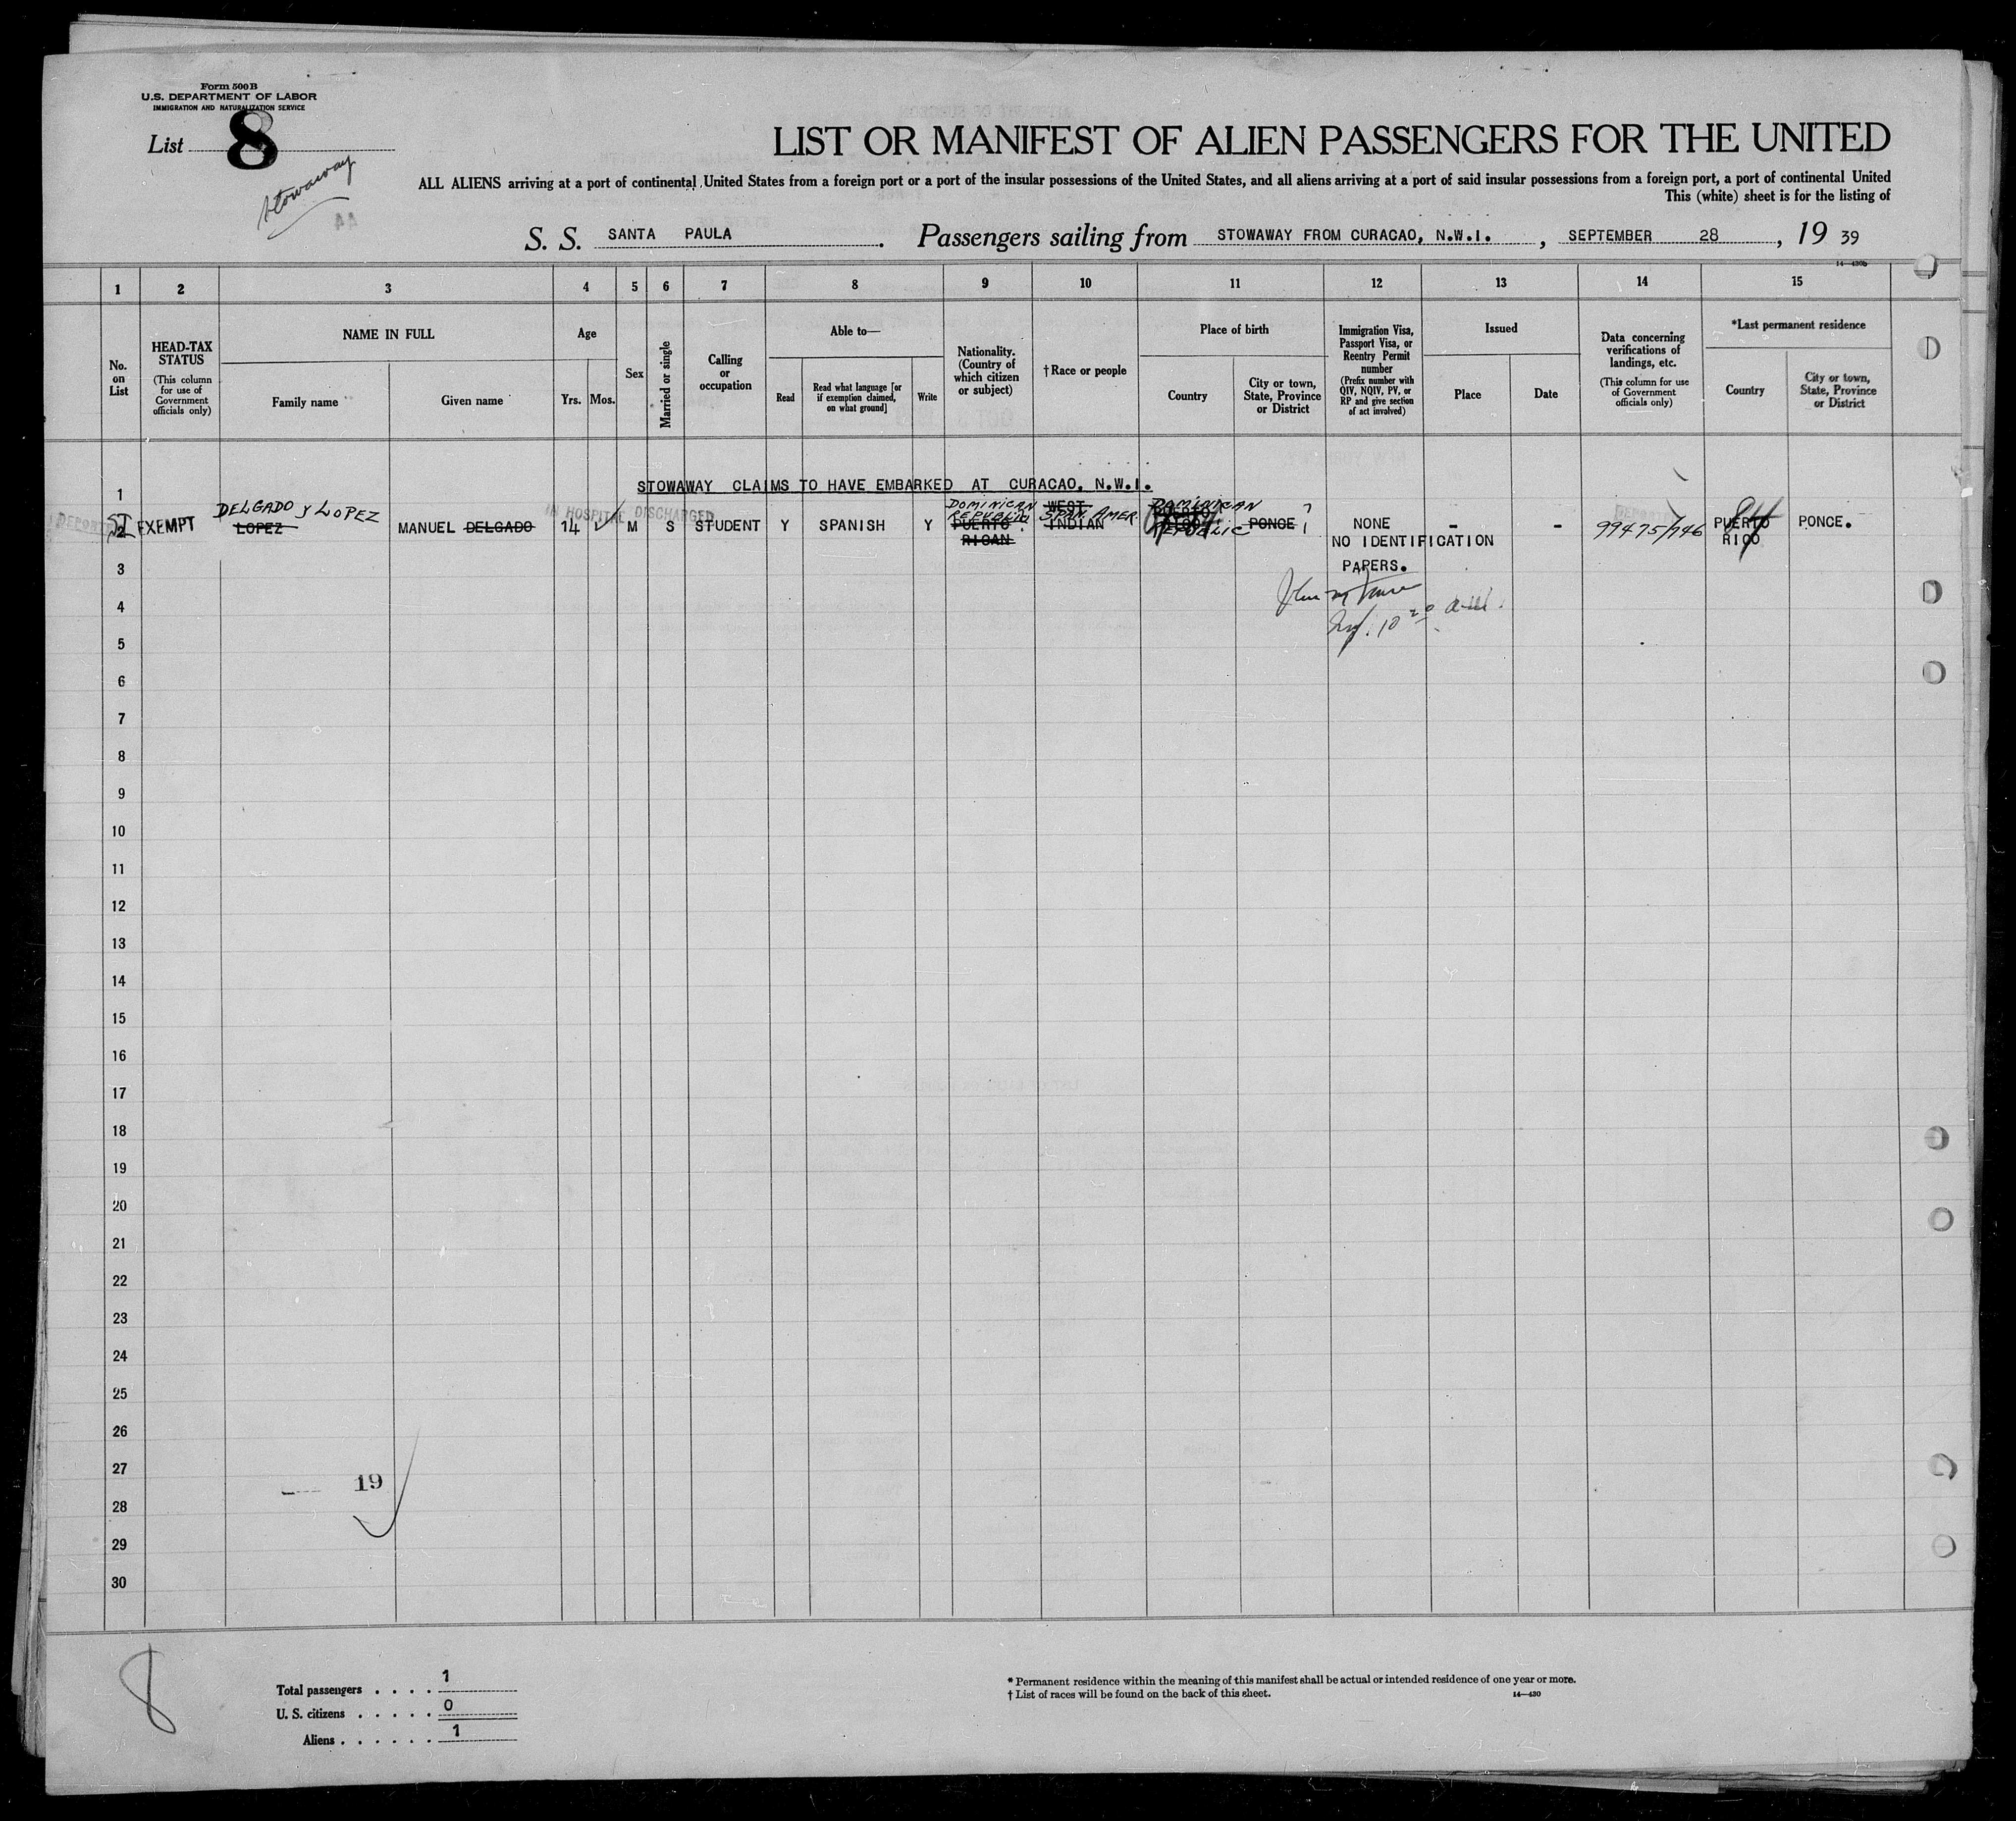 Form 500 B
U.S. DEPARTMENT OF LABOR
IMMIGRATION AND NATURALIZATION SERVICE
List 8
stowaway
44
LIST OR MANIFEST OF ALIEN PASSENGERS FOR THE UNITED
ALL ALIENS arriving at a port of continental United States from a foreign port or a port of the insular possessions of the United States, and all aliens arriving at a port of said insular possessions from a foreign port, a port of continental United
This (white) sheet is for the listing of
S. S. SANTA PAULA. Passengers sailing from STOWAWAY FROM CURACAO, N.W.I., SEPTEMBER 28, 19 39
14—430b
1 2 3 4 5 6 7 8 9 10 11 12 13 14 15
No. on List
HEAD-TAX STATUS
(This column for use of Government officials only)
NAME IN FULL
Family name
Given name
Age
Yrs. Mos.
Sex
Married or single
Calling or occupation
Able to—
Read
Read what language [or if exemption claimed, on what ground]
Write
Nationality. (Country of which citizen or subject)
†Race or people
Place of birth
Country
City or town, State, Province or District
Immigration Visa, Passport Visa, or Reentry Permit number
(Prefix number with QIV, NQIV, PV, or RP and give section of act involved)
Issued
Place
Date
Data concerning verifications of landings, etc.
(This column for use of Government officials only)
*Last permanent residence
Country
City or town, State, Province or District
1 STOWAWAY CLAIMS TO HAVE EMBARKED AT CURACAO, N.W.I.
DELGADO y LOPEZ
DOMINICAN REPUBLIC
WEST
SPAN. AMER.
DOMINICAN REPUBLIC
?
IN HOSPITAL DISCHARGED
DEPORTED
2 SI EXEMPT LOPEZ MANUEL DELGADO 14 M S STUDENT Y SPANISH Y PUERTO RICAN INDIAN PONCE NONE - - 99475/746 PUERTO RICO PONCE.
NO IDENTIFICATION
3 PAPERS.
4
Insp. 10 20 a.m.
5
6
7
8
9
10
11
12
13
14
15
16
17
18
19
20
21
22
23
24
25
26
27
19
28
29
30
8
Total passengers . . . . 1
U. S. citizens . . . . . 0
Aliens . . . . . . 1
* Permanent residence within the meaning of this manifest shall be actual or intended residence of one year or more.
† List of races will be found on the back of this sheet.
14—430